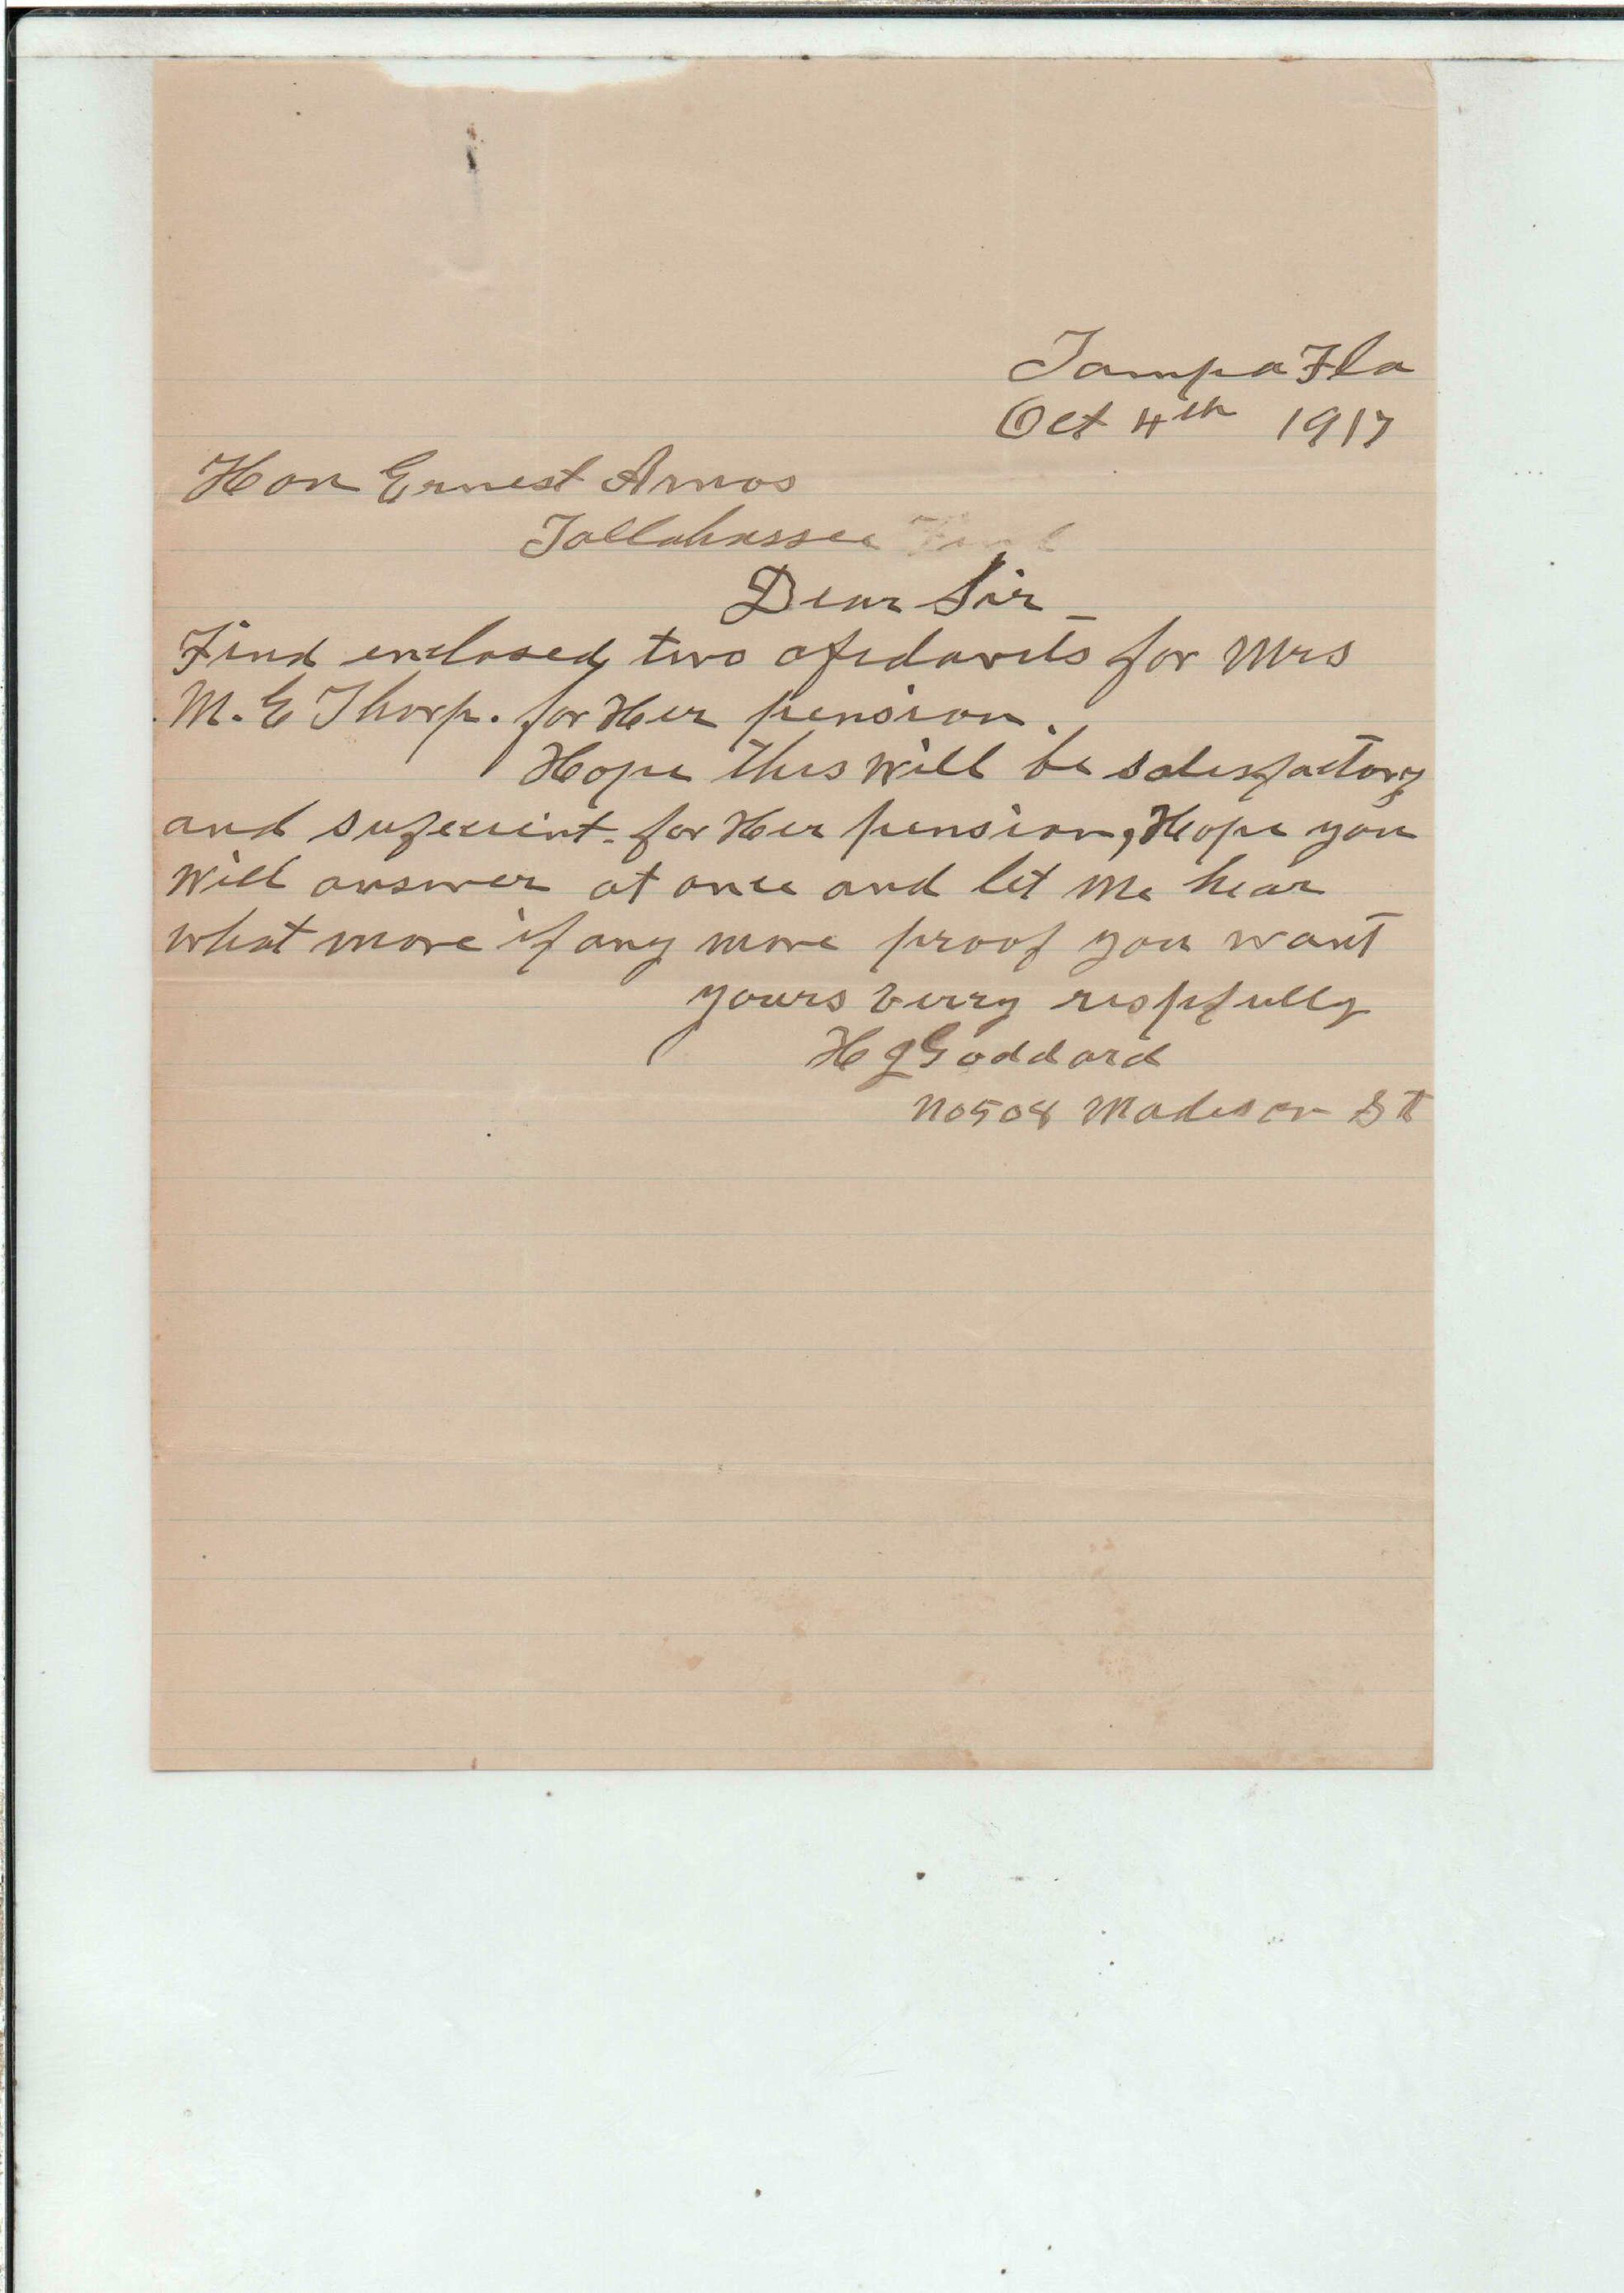 Tampa Fla
Oct 4th 1917
Hon Ernest Amos
Tallahassee
Dear Sir
Find enclosed two afidavits for Mrs
M. E Thorp. for Her pension.
Hope this will be satisfactory
and suficcint for Her pension, Hope you
will answer at once and let me hear
what more if any more proof you want
yours verry respfully
H J Goddard
No 508 Madison St